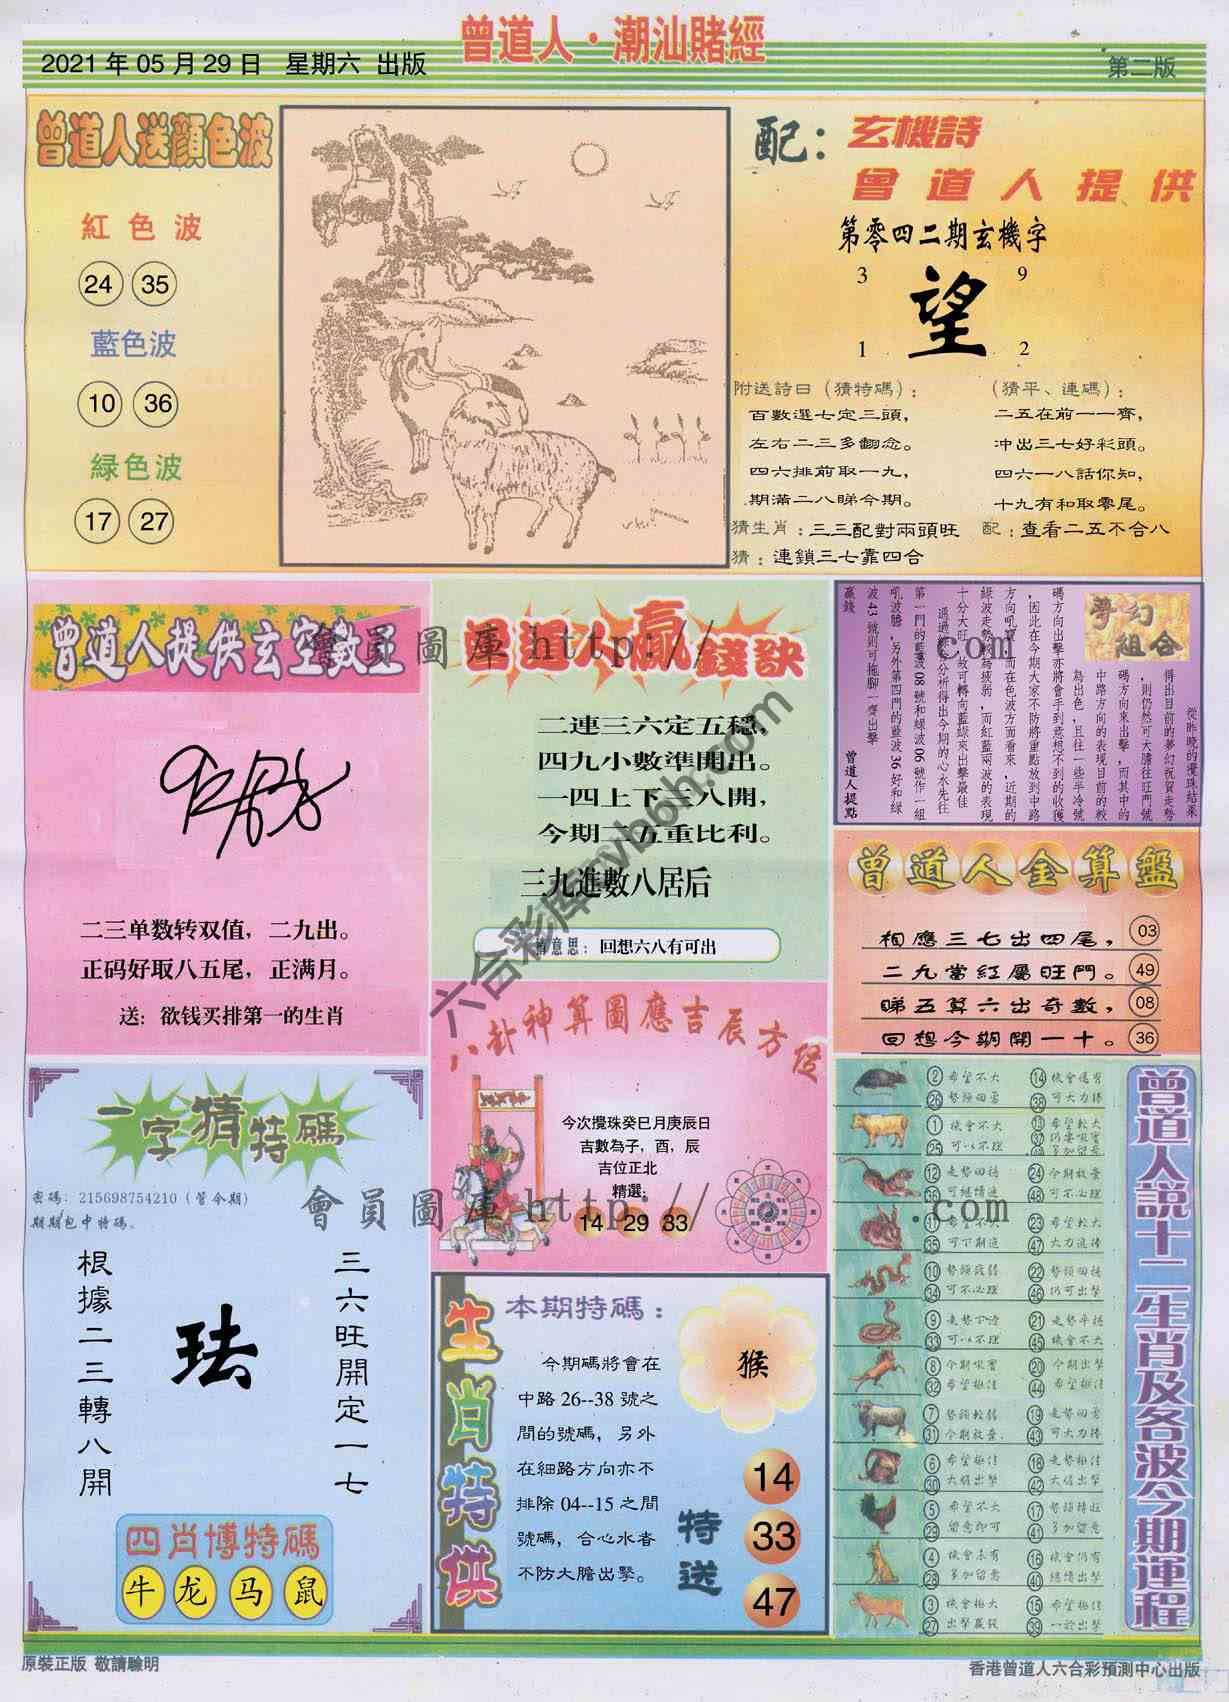 曾道人·潮汕賭經
2021年05月29日 星期六 出版
第二版
曾道人送顔色波
紅色波
24 35
藍色波
10 36
緑色波
17 27
配：玄機詩
曾道人提供
第零四二期玄機字
3 9
望
1 2
附送詩日（猜特碼）：
百數選七定三頭，
左右二三多翻念。
四六排前取一九，
期滿二八睇今期。
（猜平、連碼）：
二五在前一一齊，
冲出三七好彩頭。
四六一八話你知，
十九有和取零尾。
猜生肖：三三配對兩頭旺 配：查看二五不合八
猜：連鎖三七靠四合
曾道人提供玄空數
二三单数转双值，二九出。
正码好取八五尾，正满月。
送：欲钱买排第一的生肖
曾道人贏錢訣
二連三六定五穩，
四九小數準開出。
一四上下三八開，
今期二五重比利。
三九進數八居后
意思：回想六八有可出
夢幻組合
從昨晚的攪珠結果
得出目前的夢幻祝賀走勢
，則仍然可大膽往旺門號
碼方向來出擊，而其中的
中路方向的表現目前的較
為出色，且往一些半冷號
碼方向出擊亦將會手到意想不到的收獲
，因此在今期大家不防將重點放到中路
方向吼實，而在色波方面看來，近期的
綠波走勢較為疲弱，而紅藍兩波的表現
十分大旺，故可轉向藍綠來出擊最佳
通過綜合分析得出今期的心水先往
第一門的藍波08號和綠波06號作一組
吼波膽，另外第四門的藍波36好和綠
波43號則可拖腳一齊出擊
贏錢
曾道人提點
曾道人金算盤
相應三七出四尾， 03
二九當紅屬旺門。 49
睇五算六出奇數， 08
回想今期開一十。 36
八卦神算圖應吉辰方位
今次攪珠癸巳月庚辰日
吉數為子，酉，辰
吉位正北
精選：
14 29 33
一字猜特碼
密碼：215698754210（管今期）
期期包中特碼。
根據二三轉八開
珐
三六旺開定一七
四肖博特碼
牛 龙 马 鼠
生肖特供
本期特碼：
今期碼將會在
中路26--38號之
間的號碼，另外
在細路方向亦不
排除04--15之間
號碼，合心水者
不防大膽出擊。
猴
特送
14
33
47
曾道人説十二生肖及各波今期運程
② 希望不大 ⑭ 機會還有
㉖ 勢頭回勇 ㊳ 可大力捧
① 機會不大 ⑬ 希望較大
㉕ 可以不理 ㊲
⑫ 走勢回持 ㉔ 今期放棄
可繼續進 ㊽ 可不必理
⑪ 希望不大 ㉓ 希望較大
㉟ 可下期進 ㊼ 大力進捧
⑩ 勢頭疲弱 ㉒ 勢頭回持
㉞ 可不必理 ㊻ 仍可出擊
⑨ 走勢下滑 ㉑ 走勢平穩
㉝ 可以不理 ㊺ 機會不大
⑧ 今期吸實 ⑳ 今期出擊
㉜ 希望極佳 ㊹ 希望極佳
⑦ 勢頭較弱 ⑲ 走勢回勇
㉛ 今期放棄 ㊸ 可大力捧
⑥ 希望極佳 ⑱ 走勢極佳
㉚ 大膽出擊 ㊷ 大膽出擊
⑤ 希望不大 ⑰ 勢頭轉旺
㉙ 留意即可 ㊶ 多加留意
④ 機會未有 ⑯ 機會仍有
㉘ 多加留意 ㊵ 繼續出擊
③ 機會極大 ⑮ 希望極佳
㉗ 出擊贏錢 ㊴ 一於出擊
會員圖庫 http:// .com
六合彩库YBOH.com
會員圖庫 http:// .com
原裝正版 敬請驗明
香港曾道人六合彩預測中心出版